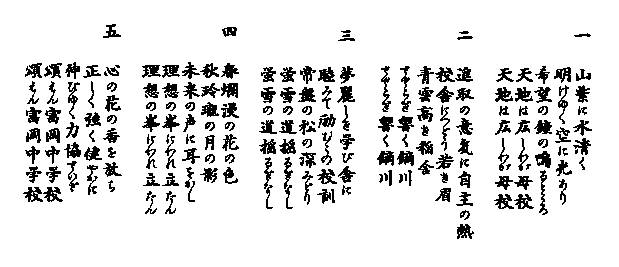 一
山紫に水清く
明けゆく空に光あり
希望の鐘の鳴るところ
天地は広しわが母校
天地は広しわが母校
二
進取の意気に自主の熱
校舎につどう若き眉
青雲高き稲含
せゝらぎ響く鏑川
せゝらぎ響く鏑川
三
夢麗しき学び舎に
睦みて励むその校訓
常盤の松の深みどり
蛍雪の道揺るぎなし
蛍雪の道揺るぎなし
四
春爛漫の花の色
秋玲瓏の月の影
未来の声に耳をかし
理想の峯にわれ立たん
理想の峯にわれ立たん
五
心の花の香を放ち
正しく強く健やかに
伸びゆく力協せつゝ
頌えん富岡中学校
頌えん富岡中学校